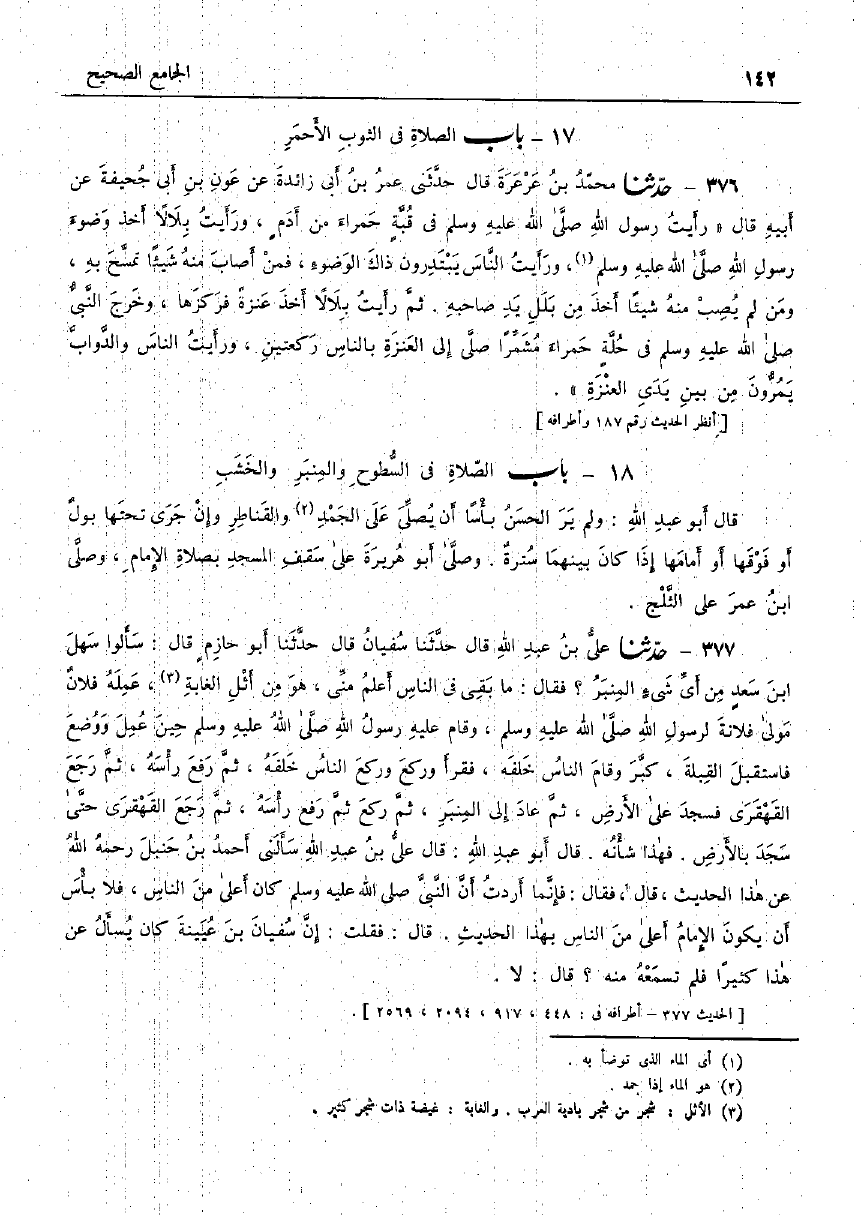 ١٤٢ الجامع الصحيح
١٧ - باب الصلاةِ فى الثوبِ الأَحمَرِ
٣٧٦ - حدّثنا محمّدُ بنُ عَرْعَرَةَ قال حدَّثَنى عمرُ بنُ أَبى زائدةَ عن عَونِ بنِ أَبى جُحيفةَ عن
أَبيهِ قال « رأَيتُ رسول اللهِ صلَّىٰ اللهُ عليهِ وسلم فى قُبَّةٍ حَمراءَ من أَدَمٍ ، ورَأَيتُ بِلَالًا أَخذ وَضوءَ
رسولِ اللهِ صلَّىٰ اللهُ عليهِ وسلم (١)، ورَأَيتُ النَّاسَ يَبْتَدِرون ذاكَ الوَضوءِ ، فمنْ أَصابَ منهُ شَيئًا تمسَّحَ بهِ ،
ومَن لم يُصِبْ منهُ شيئًا أَخذَ مِن بَلَلِ يَدِ صاحبهِ . ثمَّ رأَيتُ بِلَالًا أَخذَ عَنزةً فرَكزَها ، وخَرجَ النَّبىُّ
صلىٰ اللهُ عليهِ وسلم فى حُلَّةٍ حَمراءَ مُشَمِّرًا صلَّى إلى العَنزَةِ بالناسِ رَكعتينِ ، ورأَيتُ الناسَ والدَّوابَّ
يَمُرُّونَ مِن بينِ يَدَىِ العنْزَةِ » .
[ أنظر الحديث رقم ١٨٧ وأطرافه ] .
١٨ - باب الصّلاةِ فى السُّطوحِ والمِنبَرِ والخَشَبِ
قال أَبو عبدِ اللهِ : ولم يَرَ الحسَنُ بأْسًا أَن يُصلِّىَ عَلَى الجَمْدِ (٢) والقَناطِرِ وإنْ جَرَى تحتَها بولٌ
أَو فَوْقَها أَو أَمامَها إذَا كانَ بينهما سُترةٌ . وصلَّىٰ أَبو هُريرَةَ علىٰ سَقفِ المسجدِ بصلاةِ الإمامِ ، وصلَّى
ابنُ عمرَ على الثَّلْجِ .
٣٧٧ - حدّثنا علىُّ بنُ عبدِ اللهِ قال حدَّثَنا سُفيانُ قال حدَّثَنا أَبو حازمٍ قال : سَأَلوا سَهلَ
ابنَ سَعدٍ مِن أَىِّ شَىءٍ المِنبَرُ ؟ فقال : ما بَقِىَ فى الناسِ أَعلمُ منِّى ، هوَ مِن أَثْلِ الغابةِ (٣) ، عَمِلَهُ فلانٌ
مَولىٰ فلانةَ لرسولِ اللهِ صلَّىٰ اللهُ عليهِ وسلم ، وقام عليهِ رسولُ اللهِ صلَّىٰ اللهُ عليهِ وسلم حِينَ عُمِلَ وَوُضعَ
فاستقبلَ القِبلةَ ، كبَّرَ وقامَ الناسُ خلفَه ، فقرأَ وركعَ وركعَ الناسُ خَلفَهُ ، ثمَّ رَفعَ رأْسَهُ ، ثمَّ رَجَعَ
القَهْقَرَى فسجدَ علىٰ الأَرضِ ، ثمَّ عادَ إلى المِنبَرِ ، ثمَّ ركعَ ثمَّ رَفع رأْسَهُ ، ثمَّ رَجَعَ القَهْقرَى حتَّىٰ
سَجَدَ بالأَرضِ . فهٰذا شأْنُه . قال أَبو عبدِ اللهِ : قال علىُّ بنُ عبدِ اللهِ سَأَلَنى أَحمدُ بنُ حَنبلَ رحمهُ اللهُ
عن هٰذا الحديث ، قال ، فقال : فإنَّما أَردتُ أَنَّ النَّبىَّ صلى الله عليه وسلم كان أَعلىٰ منَ الناسِ ، فلا بأْسَ
أَن يكونَ الإمامُ أَعلىٰ منَ الناسِ بهٰذا الحديثِ . قال : فقلت : إنَّ سُفيانَ بنَ عُيَينةَ كان يُسأَلُ عن
هٰذا كثيرًا فلم تسمَعْهُ منه ؟ قال : لا .
[ الحديث ٣٧٧ - أطرافه فى : ٤٤٨ ، ٩١٧ ، ٢٠٩٤ ، ٢٥٦٩ ] .
(١) أى الماء الذى توضأ به .
(٢) هو الماء إذا جمد .
(٣) الأثل : شجر من شجر بادية العرب . والغابة : غيضة ذات شجر كثير .